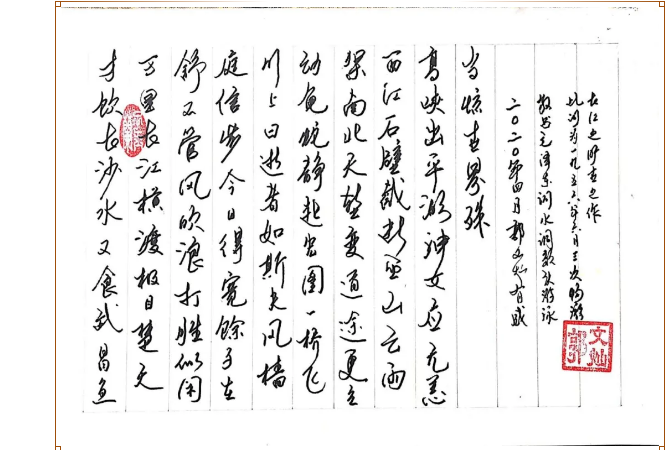 才饮长沙水又食武昌鱼
万里长江横渡极目楚天
舒不管风吹浪打胜似闲
庭信步今日得宽馀子在
川上曰逝者如斯夫风樯
动龟蛇静起宏图一桥飞
架南北天堑变通途更立
西江石壁截断巫山云雨
高峡出平湖神女应无恙
当惊世界殊
二〇二〇年四月郭文灿有感
敬书毛泽东词水调歌头游泳
此词为一九五六年六月三次畅游
长江之所之作
文灿
郭